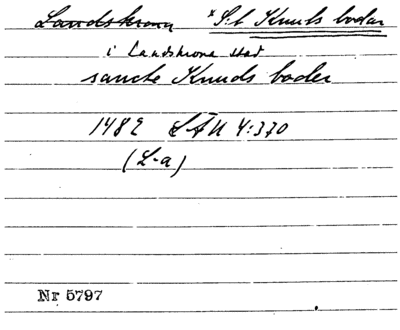 Landskrona *S:t Knuts bodar
i Landskrona stad
sancte Knuds boder
1482 LÄU 4:370
(L-a)
Nr 5797